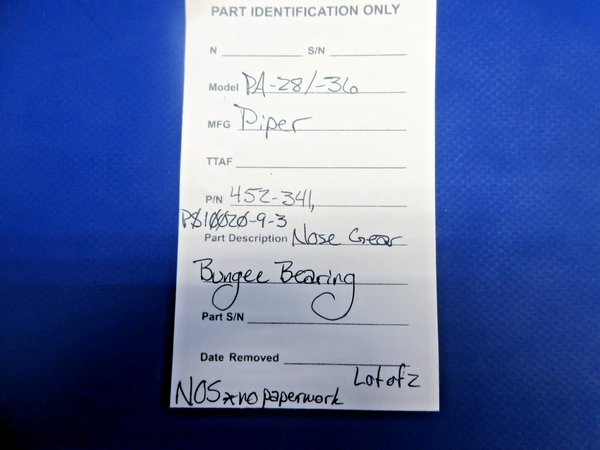 PART IDENTIFICATION ONLY
N S/N
Model PA-28/-36
MFG Piper
TTAF
P/N 452-341,
PS10020-9-3
Part Description Nose Gear
Bungee Bearing
Part S/N
Date Removed
Lot of 2
NOS *no paperwork